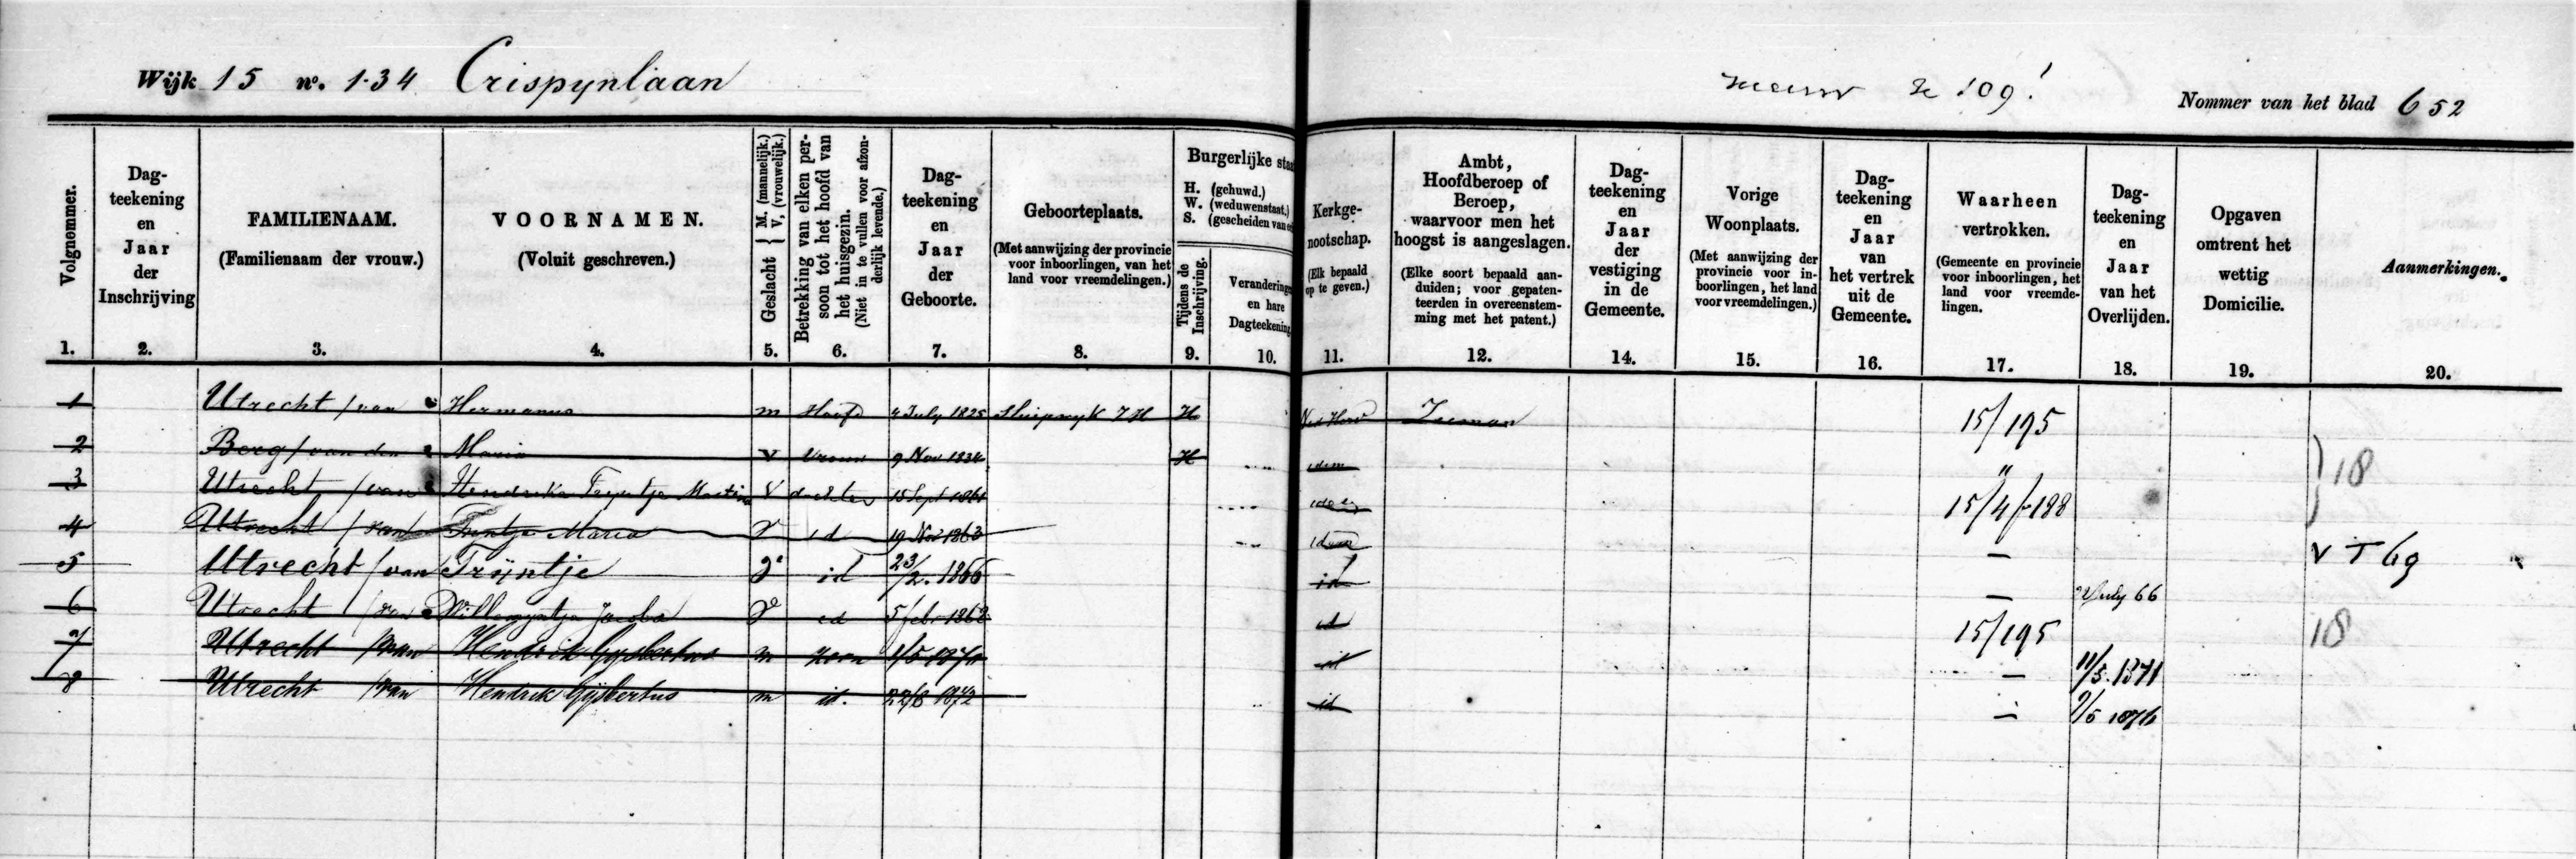 Wijk 15 no. 134 Crispynlaan
Nommer van het blad 652
Volgnommer.
Dag-
teekening
en
Jaar
der
Inschrijving
FAMILIENAAM.
(Familienaam der vrouw.)
VOORNAMEN.
(Voluit geschreven.)
Geslacht { M. (mannelijk.) V, (vrouwelijk.)
Betrekking van elken per-
soon tot het hoofd van
het huisgezin.
(Niet in te vullen voor afzon-
derlijk levende.)
Dag-
teekening
en
Jaar
der
Geboorte.
Geboorteplaats.
(Met aanwijzing der provincie
voor inboorlingen, van het
land voor vreemdelingen.)
Burgerlijke staa
H. (gehuwd.)
W. (weduwenstaat.)
S. (gescheiden van
Tijdens de
Inschrijving.
Veranderinge
en hare
Dagteekening
Kerkge-
nootschap.
(Elk bepaald
op te geven.)
Ambt,
Hoofdberoep of
Beroep,
waarvoor men het
hoogst is aangeslagen.
(Elke soort bepaald aan-
duiden; voor gepaten-
teerden in overeenstem-
ming met het patent.)
Dag-
teekening
en
Jaar
der
vestiging
in de
Gemeente.
Vorige
Woonplaats.
(Met aanwijzing der
provincie voor in-
boorlingen, het land
voor vreemdelingen.)
Dag-
teekening
en
Jaar
van
het vertrek
uit de
Gemeente.
Waarheen
vertrokken.
(Gemeente en provincie
voor inboorlingen, het
land voor vreemde-
lingen.
Dag-
teekening
en
Jaar
van het
Overlijden.
Opgaven
omtrent het
wettig
Domicilie.
Aanmerkingen.
1. 2. 3. 4. 5. 6. 7. 8. 9. 10. 11. 12. 14. 15. 16. 17. 18. 19. 20.
1 Utrecht / van Hermanus m Hoofd 4 July 1825 Sluipwyk Z H H Ned Herv Zeeman 15/195
2 Berg / van den Maria V Vrouw 9 Nov 1834 H idem " 18
3 Utrecht / van Hendrika Tryntje Martina V dochter 15 Sept 1861 idem 15/4/188
4 Utrecht / van Tryntje Maria V id 19 Nov 1863 idem — V T 69
5 Utrecht / van Trijntje V id 23/2. 1866 id — July 66
6 Utrecht / van Willempntje Jacoba V id 5 febr 1868 id 15/195 18
7 Utrecht / van Hendrik Gysbertus m zoon 1/5 1870 id — 11/3.1871
8 Utrecht / van Hendrik Gijsbertus m id. 22/8 1872 id — 9/5 1874